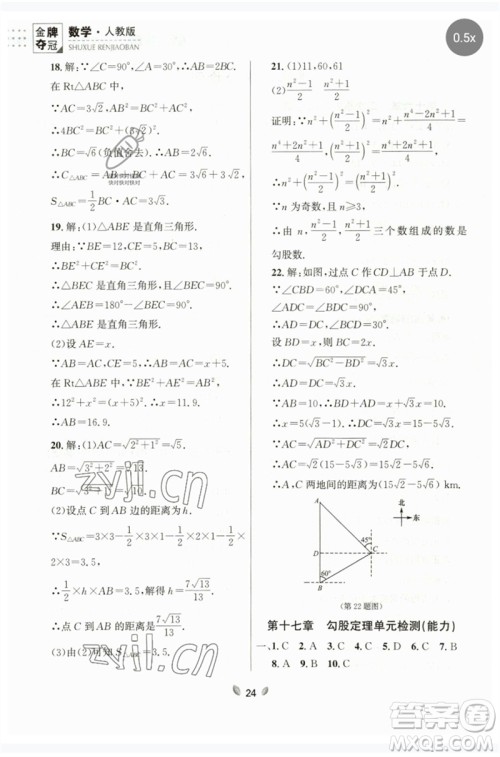 金牌夺冠
数学·人教版
SHUXUE RENJIAOBAN
0.5x
18.解:∵∠C=90°,∠A=60°,
在Rt△ABC 中,
∵AC=3√2,
∴AB²=AC²+BC²,
∴4BC²=BC²+(3√2)²,
∴BC=√6(负值舍去).
∴C△ABC=AB+BC+AC=3√6+3√2,
S△ABC=1/2 BC·AC=3√3.
19.解:(1)△ABE 是直角三角形.
理由:∵BE=12,CE=5,BC=13,
∴BE²+CE²=BC²,
∴△BEC 是直角三角形,∠BEC=90°,
∴∠AEB=180°-∠BEC=90°,
∴△ABE 是直角三角形.
(2)设 AE=x.
∵AB=AC,CE=5,∴AB=AC=x+5.
在Rt△ABE 中,∵BE²+AE²=AB²,
∴12²+x²=(x+5)².
解得x=11.9.
20.解:(1)AC=√2²+1²=√5.
AB=√3²+2²=√13,
BC=√3²+1²=√10.
(2)设点 C 到 AB 的距离为h.
∵S△ABC=3×3-1/2×3×1-1/2×2×1-1/2×2×3=3.5,
∴1/2×h×AB=3.5,∴h=7√13/13.
∴点 C 到 AB 的距离为7√13/13.
(3)由(2)知,S△ABC=3.5.
21.(1)11,60,61
(2)n²-1/2 n²+1/2
证明:∵n²+(n²-1/2)²=n²+n⁴-2n²+1/4=n⁴+2n²+1/4,(n²+1/2)²=n⁴+2n²+1/4,
∴n²+(n²-1/2)²=(n²+1/2)².
∵n为奇数,且n≥3,
∴由n,n²-1/2,n²+1/2三个数组成的数是
勾股数.
22.解:如图,过点 C 作CD⊥AB 于点 D,
∵∠BCD=90°-60°=30°,
∠DCA=90°-45°=45°,
∴∠BCD=30°,∠A=∠DCA=45°.
设BD=x,则BC=2x.
∴DC=√BC²-BD²=√3x.
∵∠A=∠DCA,∴AD=DC=√3x.
∵AB=10,∴x+√3x=10,
∴x=5√3-5,∴DC=(15-5√3).
∴AC=√AD²+DC²=√2DC
=√2(15-5√3)=(15√2-5√6).
∴A,C 两地间的距离为(15√2-5√6) km.
A
北
东
45°
D
C
60°
B
(第22题图)
第十七章 勾股定理单元检测(能力)
一、1.C 2.C 3.D 4.A 5.C 6.C
7.B 8.A 9.B 10.D
24
zyjl.cn
zyjl.cn
作业答案